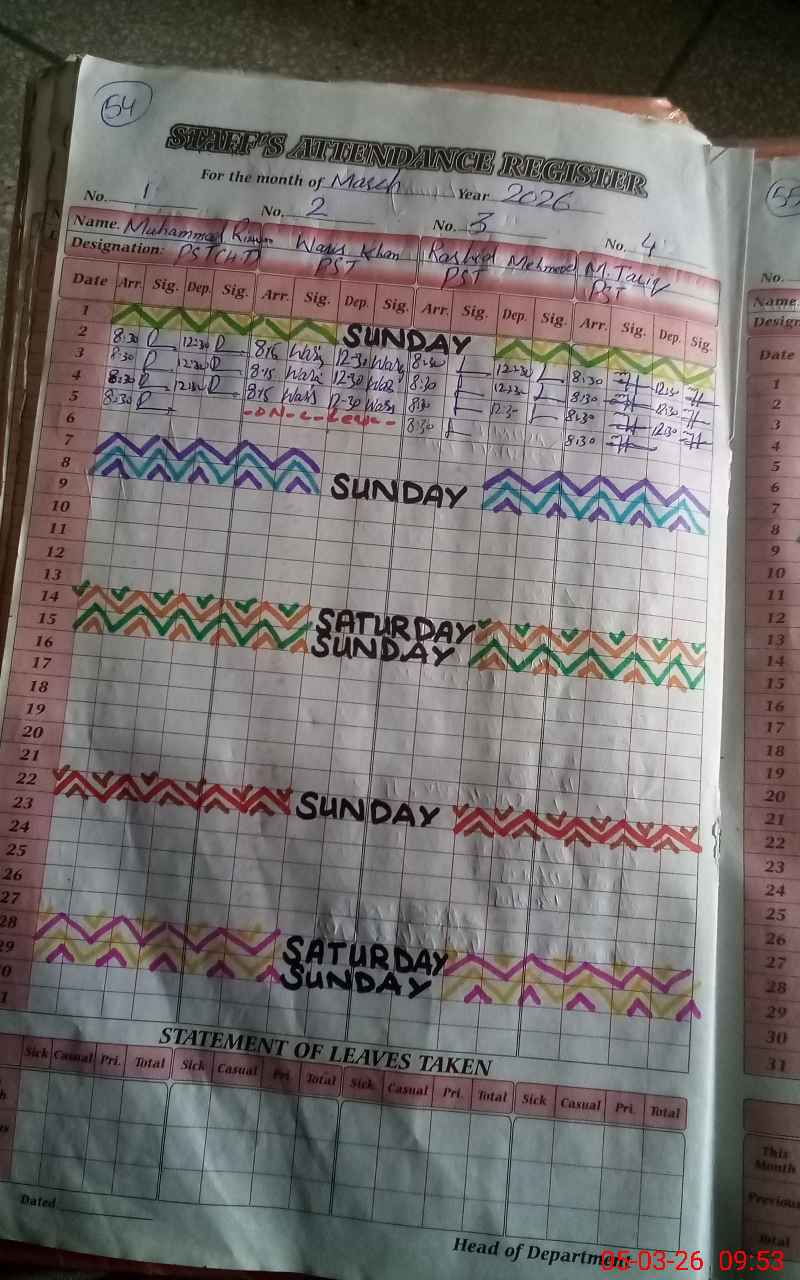 54
STAFF'S ATTENDANCE REGISTER
For the month of March Year 2026
No. 1 No. 2 No. 3 No. 4
Name. Muhammad Waris Khan Rashid Mehmood M. Tariq
Designation: PST PST PST
Date Arr. Sig. Dep. Sig. Arr. Sig. Dep. Sig. Arr. Sig. Dep. Sig. Arr. Sig. Dep. Sig.
1 SUNDAY
2 8:30 12:30 8:15 Waris 12-30 Waris 8:30 12:30 8:30 12:30
3 8:30 12:30 8:15 Waris 12-30 Waris 8:30 12:30 8:30 12:30
4 8:30 12:30 8:15 Waris 12-30 Waris 8:30 12:30 8:30 12:30
5 8:30 -On-C-Leave- 8:30 8:30
6
7
8 SUNDAY
9
10
11
12
13
14 SATURDAY
15 SUNDAY
16
17
18
19
20
21
22 SUNDAY
23
24
25
26
27
28 SATURDAY
29 SUNDAY
0
1
STATEMENT OF LEAVES TAKEN
Sick Casual Pri. Total Sick Casual Pri. Total Sick Casual Pri. Total Sick Casual Pri. Total
Dated
Head of Department
55
No.
Name
Design
Date
1
2
3
4
5
6
7
8
9
10
11
12
13
14
15
16
17
18
19
20
21
22
23
24
25
26
27
28
29
30
31
This
Month
Previous
Total
05-03-26 09:53